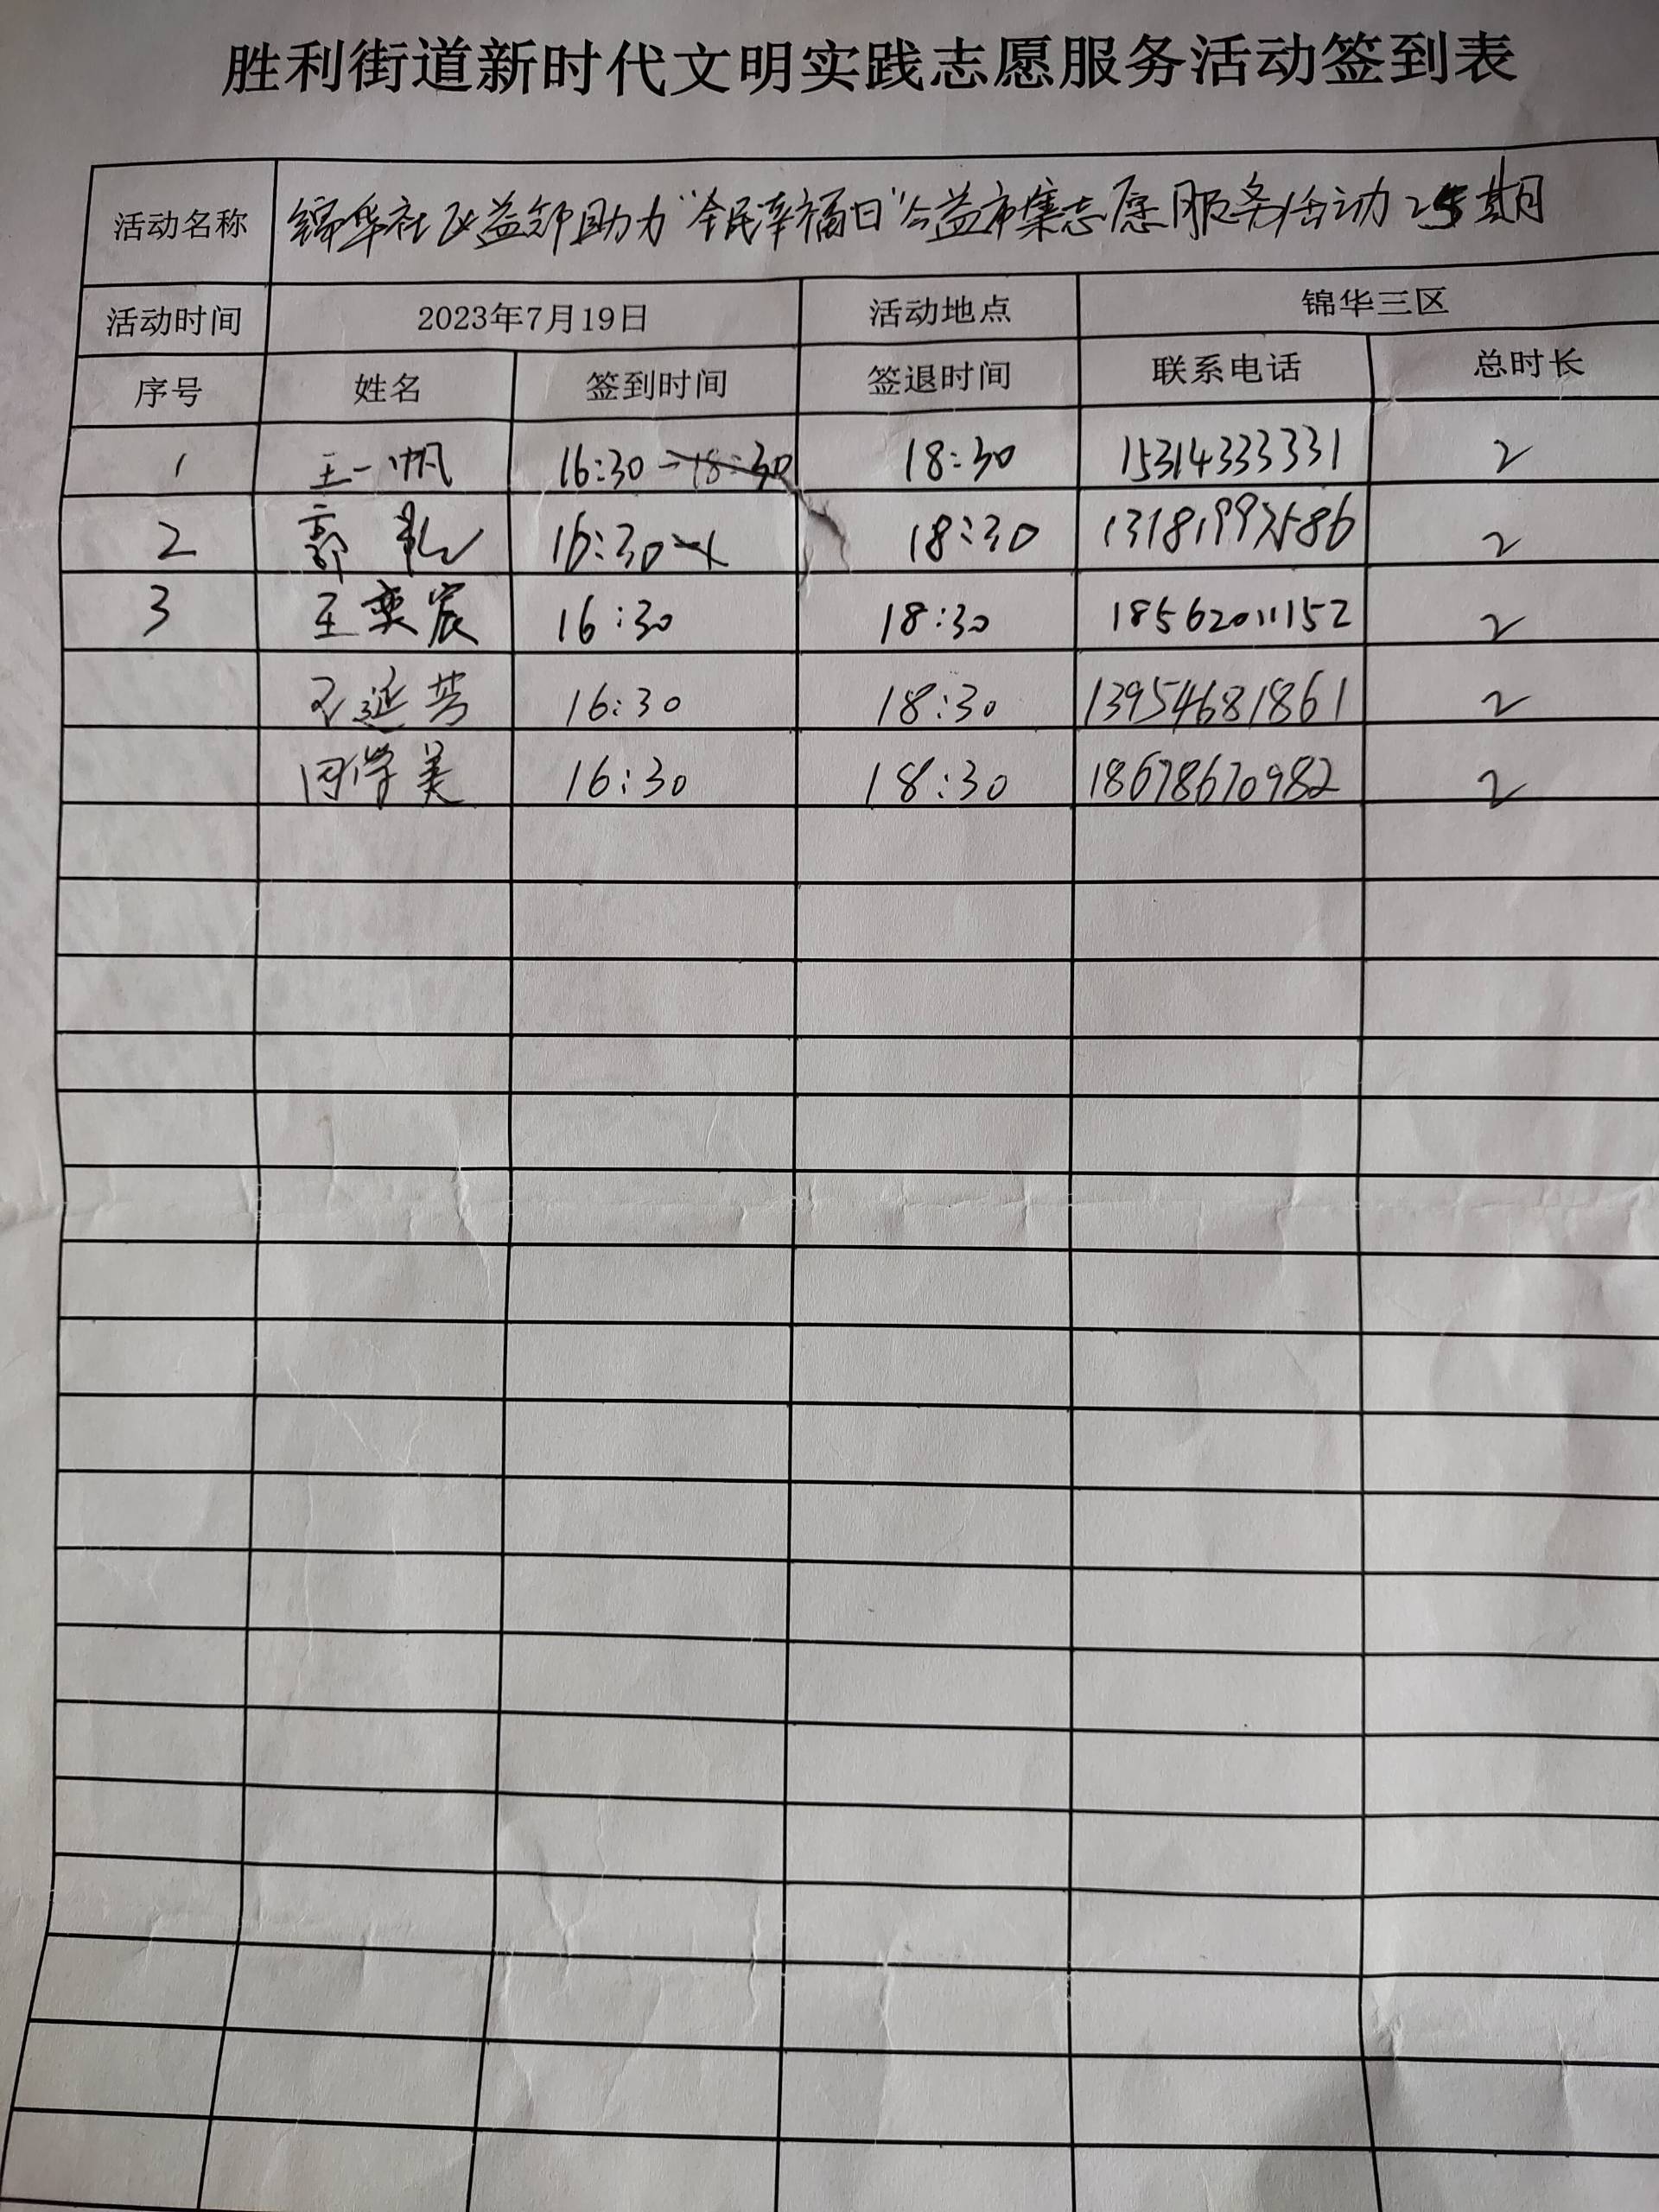 胜利街道新时代文明实践志愿服务活动签到表
活动名称 锦华社区益邻助力“全民幸福日”公益市集志愿服务活动25期
活动时间 2023年7月19日 活动地点 锦华三区
序号 姓名 签到时间 签退时间 联系电话 总时长
1 王一帆 16:30-18:30 18:30 15314333331 2
2 郭 16:30 18:30 2
3 王奕宸 16:30 18:30 18562011152 2
王延芳 16:30 18:30 13954681861 2
闫学美 16:30 18:30 18678670982 2